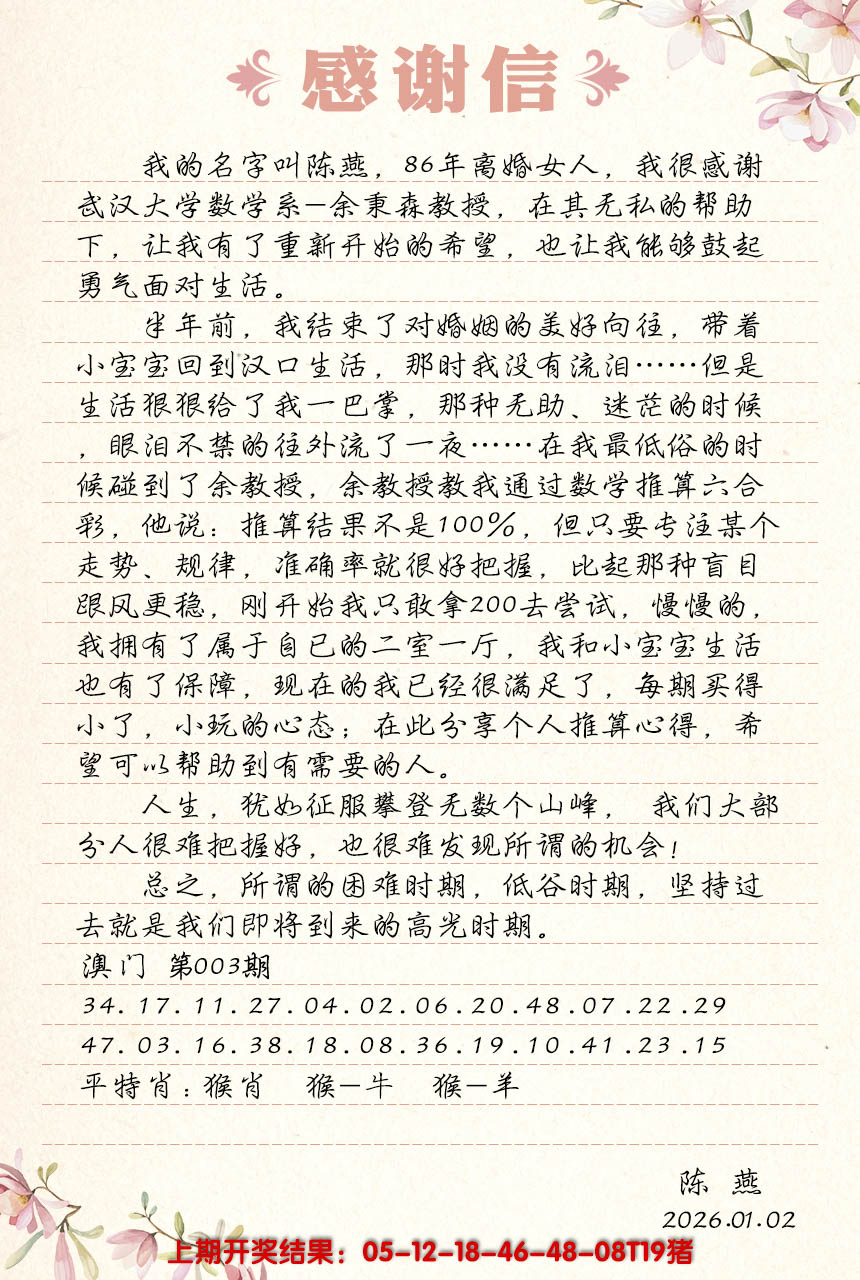 感谢信
我的名字叫陈燕，86年离婚女人，我很感谢
武汉大学数学系-余秉森教授，在其无私的帮助
下，让我有了重新开始的希望，也让我能够鼓起
勇气面对生活。
半年前，我结束了对婚姻的美好向往，带着
小宝宝回到汉口生活，那时我没有流泪……但是
生活狠狠给了我一巴掌，那种无助、迷茫的时候
，眼泪不禁的往外流了一夜……在我最低俗的时
候碰到了余教授，余教授教我通过数学推算六合
彩，他说：推算结果不是100%，但只要专注某个
走势、规律，准确率就很好把握，比起那种盲目
跟风更稳，刚开始我只敢拿200去尝试，慢慢的，
我拥有了属于自已的二室一厅，我和小宝宝生活
也有了保障，现在的我已经很满足了，每期买得
小了，小玩的心态；在此分享个人推算心得，希
望可以帮助到有需要的人。
人生，犹如征服攀登无数个山峰， 我们大部
分人很难把握好，也很难发现所谓的机会！
总之，所谓的困难时期，低谷时期，坚持过
去就是我们即将到来的高光时期。
澳门 第003期
34.17.11.27.04.02.06.20.48.07.22.29
47.03.16.38.18.08.36.19.10.41.23.15
平特肖：猴肖 猴-牛 猴-羊
陈 燕
2026.01.02
上期开奖结果：05-12-18-46-48-08T19猪